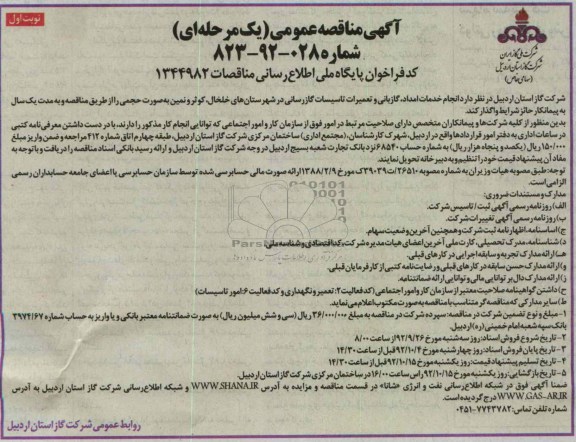 نوبت اول
آگهی مناقصه عمومی (یک مرحله‌ای)
شماره ۰۲۸-۹۲-۸۲۳
کد فراخوان پایگاه ملی اطلاع رسانی مناقصات ۱۳۴۴۹۸۲
شرکت ملی گاز ایران
شرکت گاز استان اردبیل
(سهامی خاص)
شرکت گاز استان اردبیل در نظر دارد انجام خدمات امداد، گازبانی و تعمیرات تاسیسات گازرسانی در شهرستان‌های خلخال، کوثر و نمین به صورت حجمی را از طریق مناقصه و به مدت یک سال
به پیمانکار حائز شرایط واگذار کند.
بدین منظور از کلیه شرکت‌ها و پیمانکاران متخصص دارای صلاحیت مرتبط در امور فوق از سازمان کار و امور اجتماعی که توانایی انجام کار مذکور را دارند، با در دست داشتن معرفی‌نامه کتبی
در ساعات اداری به دفتر امور قراردادها واقع در اردبیل، شهرک کارشناسان، (مجتمع اداری) ساختمان مرکزی شرکت گاز استان اردبیل، طبقه چهارم اتاق شماره ۴۱۲ مراجعه و ضمن واریز مبلغ
۱۵۰/۰۰۰ ریال (یکصد و پنجاه هزار ریال) به شماره حساب ۶۸۵۴۰ نزد بانک تجارت شعبه بسیج اردبیل در وجه شرکت گاز استان اردبیل و ارائه رسید بانکی اسناد مناقصه را دریافت و با توجه به
مفاد آن پیشنهاد قیمت خود را تنظیم و به دبیرخانه تحویل نمایند.
توجه: طبق مصوبه هیات وزیران به شماره مصوبه ۲۶۵۱۰/ت۳۹۰۳۹ک مورخ ۱۳۸۸/۲/۹ ارائه صورت مالی حسابرسی شده توسط سازمان حسابرسی یا اعضای جامعه حسابداران رسمی
الزامی است.
مدارک و مستندات ضروری:
الف) روزنامه رسمی آگهی ثبت / تاسیس شرکت.
ب) روزنامه رسمی آگهی تغییرات شرکت.
ج) اساسنامه، اظهارنامه ثبت شرکت و همچنین آخرین وضعیت سهام.
د) شناسنامه، مدرک تحصیلی، کارت ملی آخرین اعضای هیات مدیره شرکت، کد اقتصادی و شناسه ملی.
هـ) ارائه مدارک تجربه و سابقه اجرایی در کارهای قبلی.
و) ارائه مدارک حسن سابقه در کارهای قبلی و رضایت‌نامه کتبی از کارفرمایان قبلی.
ز) ارائه مدارک دال بر توانایی مالی و توانایی ارائه ضمانتنامه.
ح) داشتن گواهینامه صلاحیت معتبر از سازمان کار و امور اجتماعی (کد فعالیت ۲: تعمیر و نگهداری و کد فعالیت ۶: امور تاسیسات)
ط) سایر مدارکی که مناقصه‌گر متناسب با مناقصه به صورت مکتوب اعلام می‌نماید.
۱- مبلغ و نوع تضمین شرکت در مناقصه: سپرده شرکت در مناقصه به مبلغ ۳۶/۰۰۰/۰۰۰ ریال (سی و شش میلیون ریال) به صورت ضمانتنامه معتبر بانکی و یا واریز به حساب شماره ۳۹۷۴/۶۷
بانک سپه شعبه امام خمینی (ره) اردبیل.
۲- تاریخ شروع فروش اسناد: روز سه‌شنبه مورخ ۹۲/۹/۲۶ از ساعت ۸/۰۰
۳- تاریخ پایان فروش اسناد: روز چهارشنبه مورخ ۹۲/۱۰/۴ قبل از ساعت ۱۴/۳۰
۴- تاریخ تسلیم پیشنهاد قیمت: روز یکشنبه مورخ ۹۲/۱۰/۱۵ قبل از ساعت ۱۴/۳۰
۵- تاریخ بازگشایی: روز یکشنبه مورخ ۹۲/۱۰/۱۵ راس ساعت ۱۶/۰۰ در ساختمان مرکزی شرکت گاز استان اردبیل.
ضمنا آگهی فوق در شبکه اطلاع‌رسانی نفت و انرژی «شانا» در قسمت مناقصه و مزایده به آدرس WWW.SHANA.IR و شبکه اطلاع‌رسانی شرکت گاز استان اردبیل به آدرس
WWW.GAS-AR.IR درج گردیده است.
شماره تلفن تماس: ۷۷۴۳۷۸۲-۰۴۵۱
روابط عمومی شرکت گاز استان اردبیل